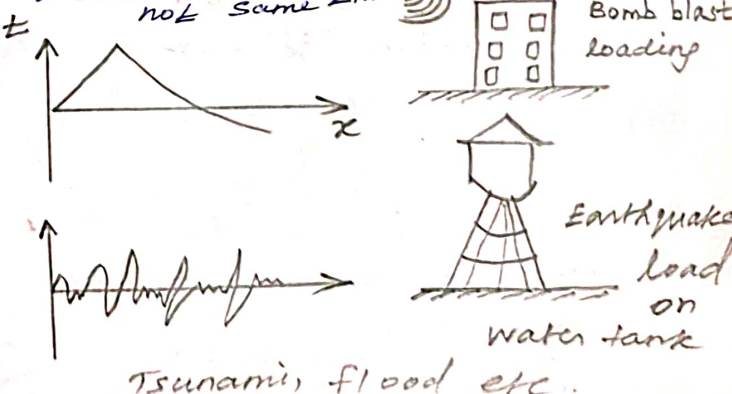 not same
Bomb blast
loading
t
x
Earthquake
load
on
water tank
Tsunami, flood etc.